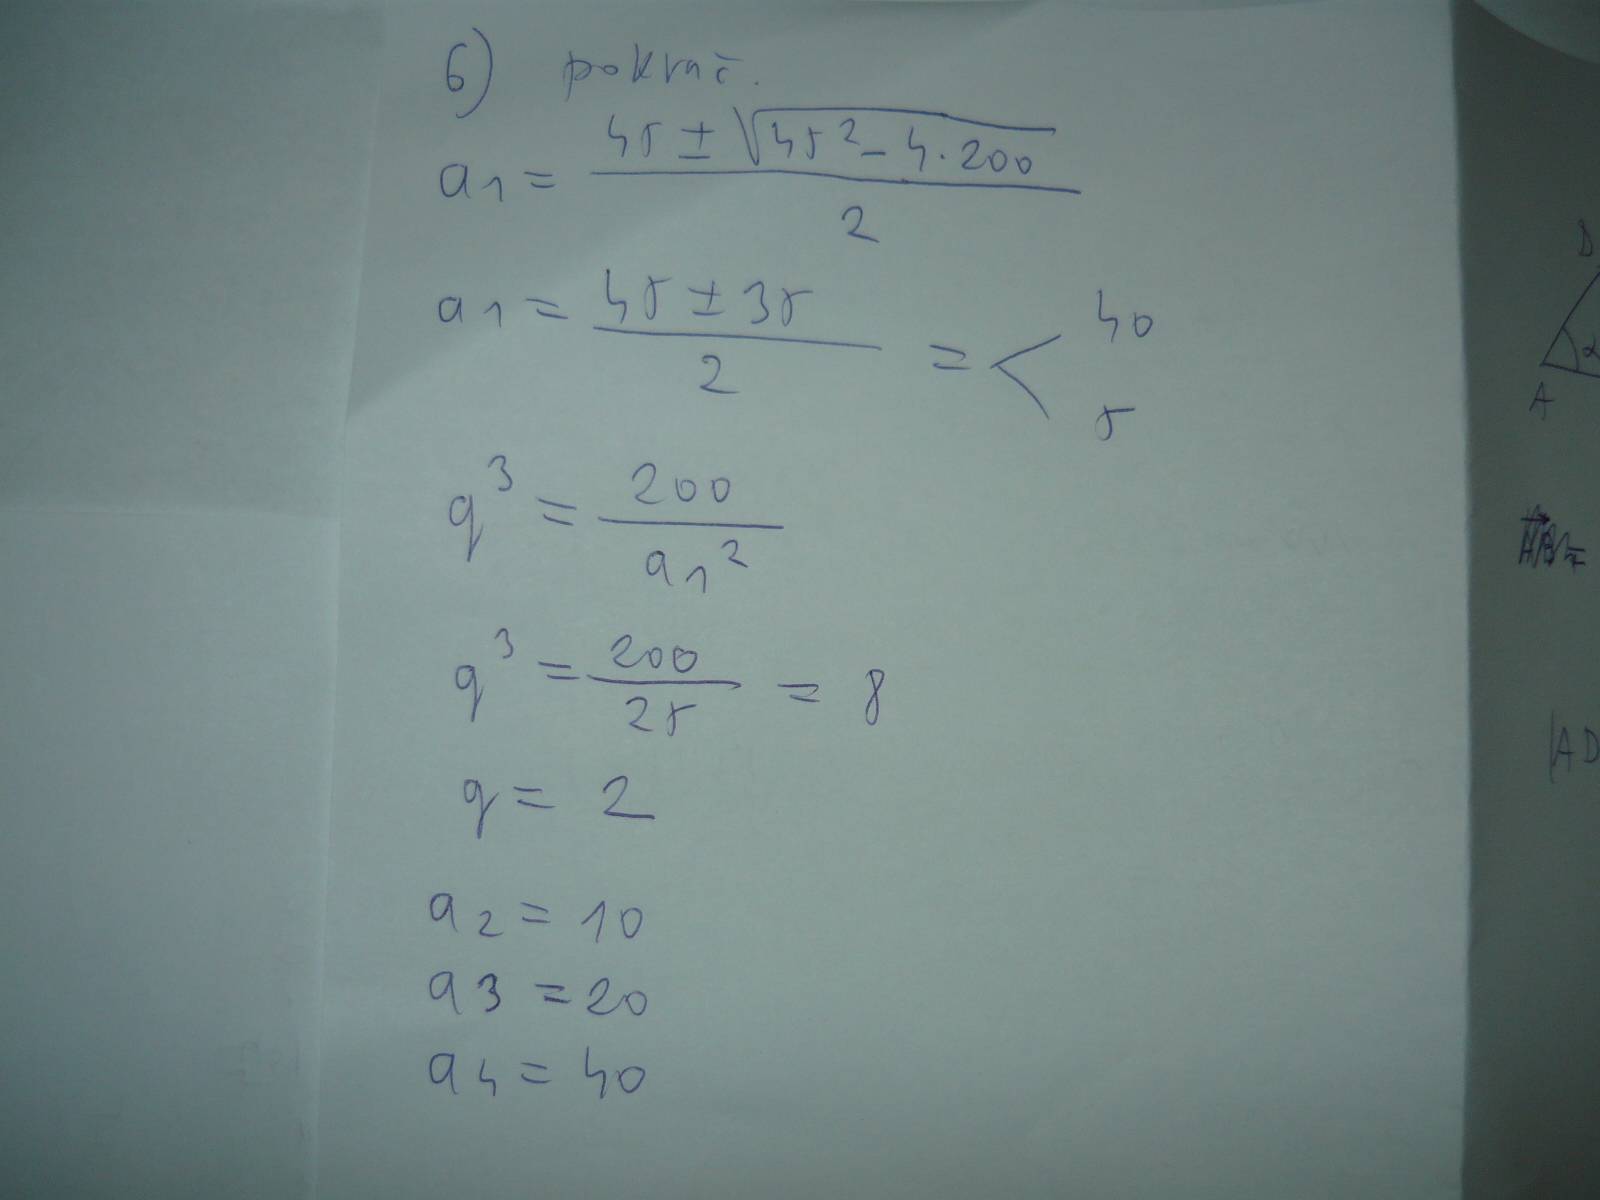 6) pokrač.
a1 = (45 ± √(45² - 4·200)) / 2
a1 = (45 ± 35) / 2 = < 40
5
q³ = 200 / a1²
q³ = 200 / 25 = 8
q = 2
a2 = 10
a3 = 20
a4 = 40
D
α
A
|AD